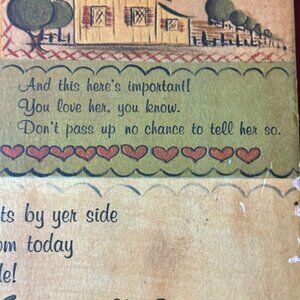 And this here's important!
You love her, you know.
Don't pass up no chance to tell her so.
by yer side
today